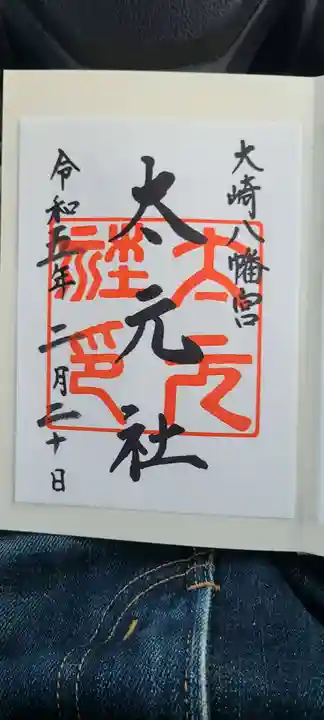 大崎八幡宮
太元社
太元社印
令和五年二月二十日